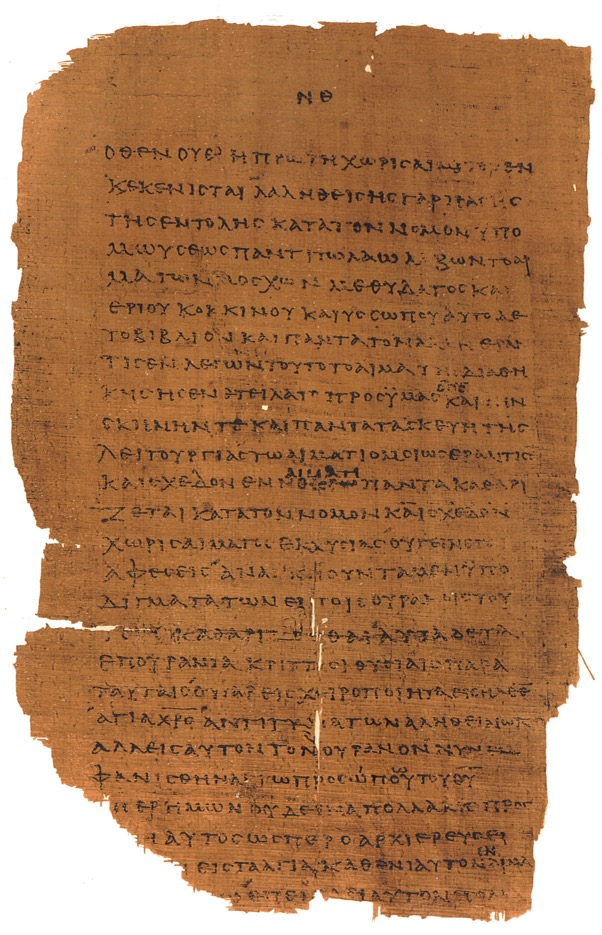 ΝΘ
ΟΘΕΝ ΟΥΔ Η ΠΡΩΤΗ ΧΩΡΙϹ ΑΙΜΑΤΟϹ ΕΝ
ΚΕΚΕΝΙϹΤΑΙ ΛΑΛΗΘΕΙϹΗϹ ΓΑΡ ΠΑϹΗϹ
ΤΗϹ ΕΝΤΟΛΗϹ ΚΑΤΑ ΤΟΝ ΝΟΜΟΝ ΥΠΟ
ΜΩΥϹΕΩϹ ΠΑΝΤΙ ΤΩ ΛΑΩ ΛΑΒΩΝ ΤΟ ΑΙ
ΜΑ ΤΩΝ ΜΟϹΧΩΝ ΜΕΘ ΥΔΑΤΟϹ ΚΑΙ
ΕΡΙΟΥ ΚΟΚΚΙΝΟΥ ΚΑΙ ΥϹϹΩΠΟΥ ΑΥΤΟ ΔΕ
ΤΟ ΒΙΒΛΙΟΝ ΚΑΙ ΠΑΝΤΑ ΤΟΝ
ΤΙϹΕΝ ΛΕΓΩΝ ΤΟΥΤΟ ΤΟ ΑΙΜΑ ΤΗϹ ΔΙΑΘΗ
ΚΗϹ ΗϹ ΕΝΕΤΕΙΛΑΤΟ ΠΡΟϹ ΥΜΑϹ ΚΑΙ
ϹΚΗΝΗΝ ΤΕ ΚΑΙ ΠΑΝΤΑ ΤΑ ϹΚΕΥΗ ΤΗϹ
ΛΕΙΤΟΥΡΓΙΑϹ ΤΩ ΑΙΜΑΤΙ ΟΜΟΙΩϹ ΕΡΑΝΤΙϹ
ΑΙΜΑΤΙ
ΚΑΙ ϹΧΕΔΟΝ ΕΝ ΠΑΝΤΑ ΚΑΘΑΡΙ
ΖΕΤΑΙ ΚΑΤΑ ΤΟΝ ΝΟΜΟΝ ΚΑΙ ϹΧΕΔΟΝ
ΧΩΡΙϹ ΑΙΜΑΤΕΚΧΥϹΙΑϹ ΟΥ ΓΕΙΝΕΤΑΙ
ΑΦΕϹΕΙϹ ΑΝΑΓΚΗ ΟΥΝ ΤΑ ΜΕΝ ΥΠΟ
ΔΙΓΜΑΤΑ ΤΩΝ ΕΝ ΤΟΙϹ ΟΥΡΑΝΟΙϹ ΤΟΥ
ΚΑΘΑΡΙΖΕϹΘΑΙ ΑΥΤΑ ΔΕ ΤΑ
ΕΠΟΥΡΑΝΙΑ ΚΡΙΤΤΟϹΙ ΘΥϹΙΑΙϹ ΠΑΡΑ
ΤΑΥΤΑϹ ΟΥ ΓΑΡ ΕΙϹ ΧΙΡΟΠΟΙΗΤΑ ΕΙϹΗΛΘΕ
ΑΓΙΑ ΧΡϹ ΑΝΤΙΤΥΠΑ ΤΩΝ ΑΛΗΘΕΙΝΩΝ
ΑΛΛ ΕΙϹ ΑΥΤΟΝ ΤΟΝ ΟΥΡΑΝΟΝ ΝΥΝ
ΦΑΝΙϹΘΗΝΑΙ ΤΩ ΠΡΟϹΩΠΟΥ ΤΟΥ ΘΥ
ΥΠΕΡ ΗΜΩΝ ΟΥΔΕ ΙΝΑ ΠΟΛΛΑΚΙϹ ΠΡΟϹ
Η ΑΥΤΟϹ ΩϹΠΕΡ Ο ΑΡΧΙΕΡΕΥϹ ΕΙ
ΕΙϹ ΤΑ ΑΓΙΑ ΚΑΘ ΕΝΙΑΥΤΟΝ ΕΝ
ΕΠΕΙ ΕΔΕΙ ΑΥΤΟΝ